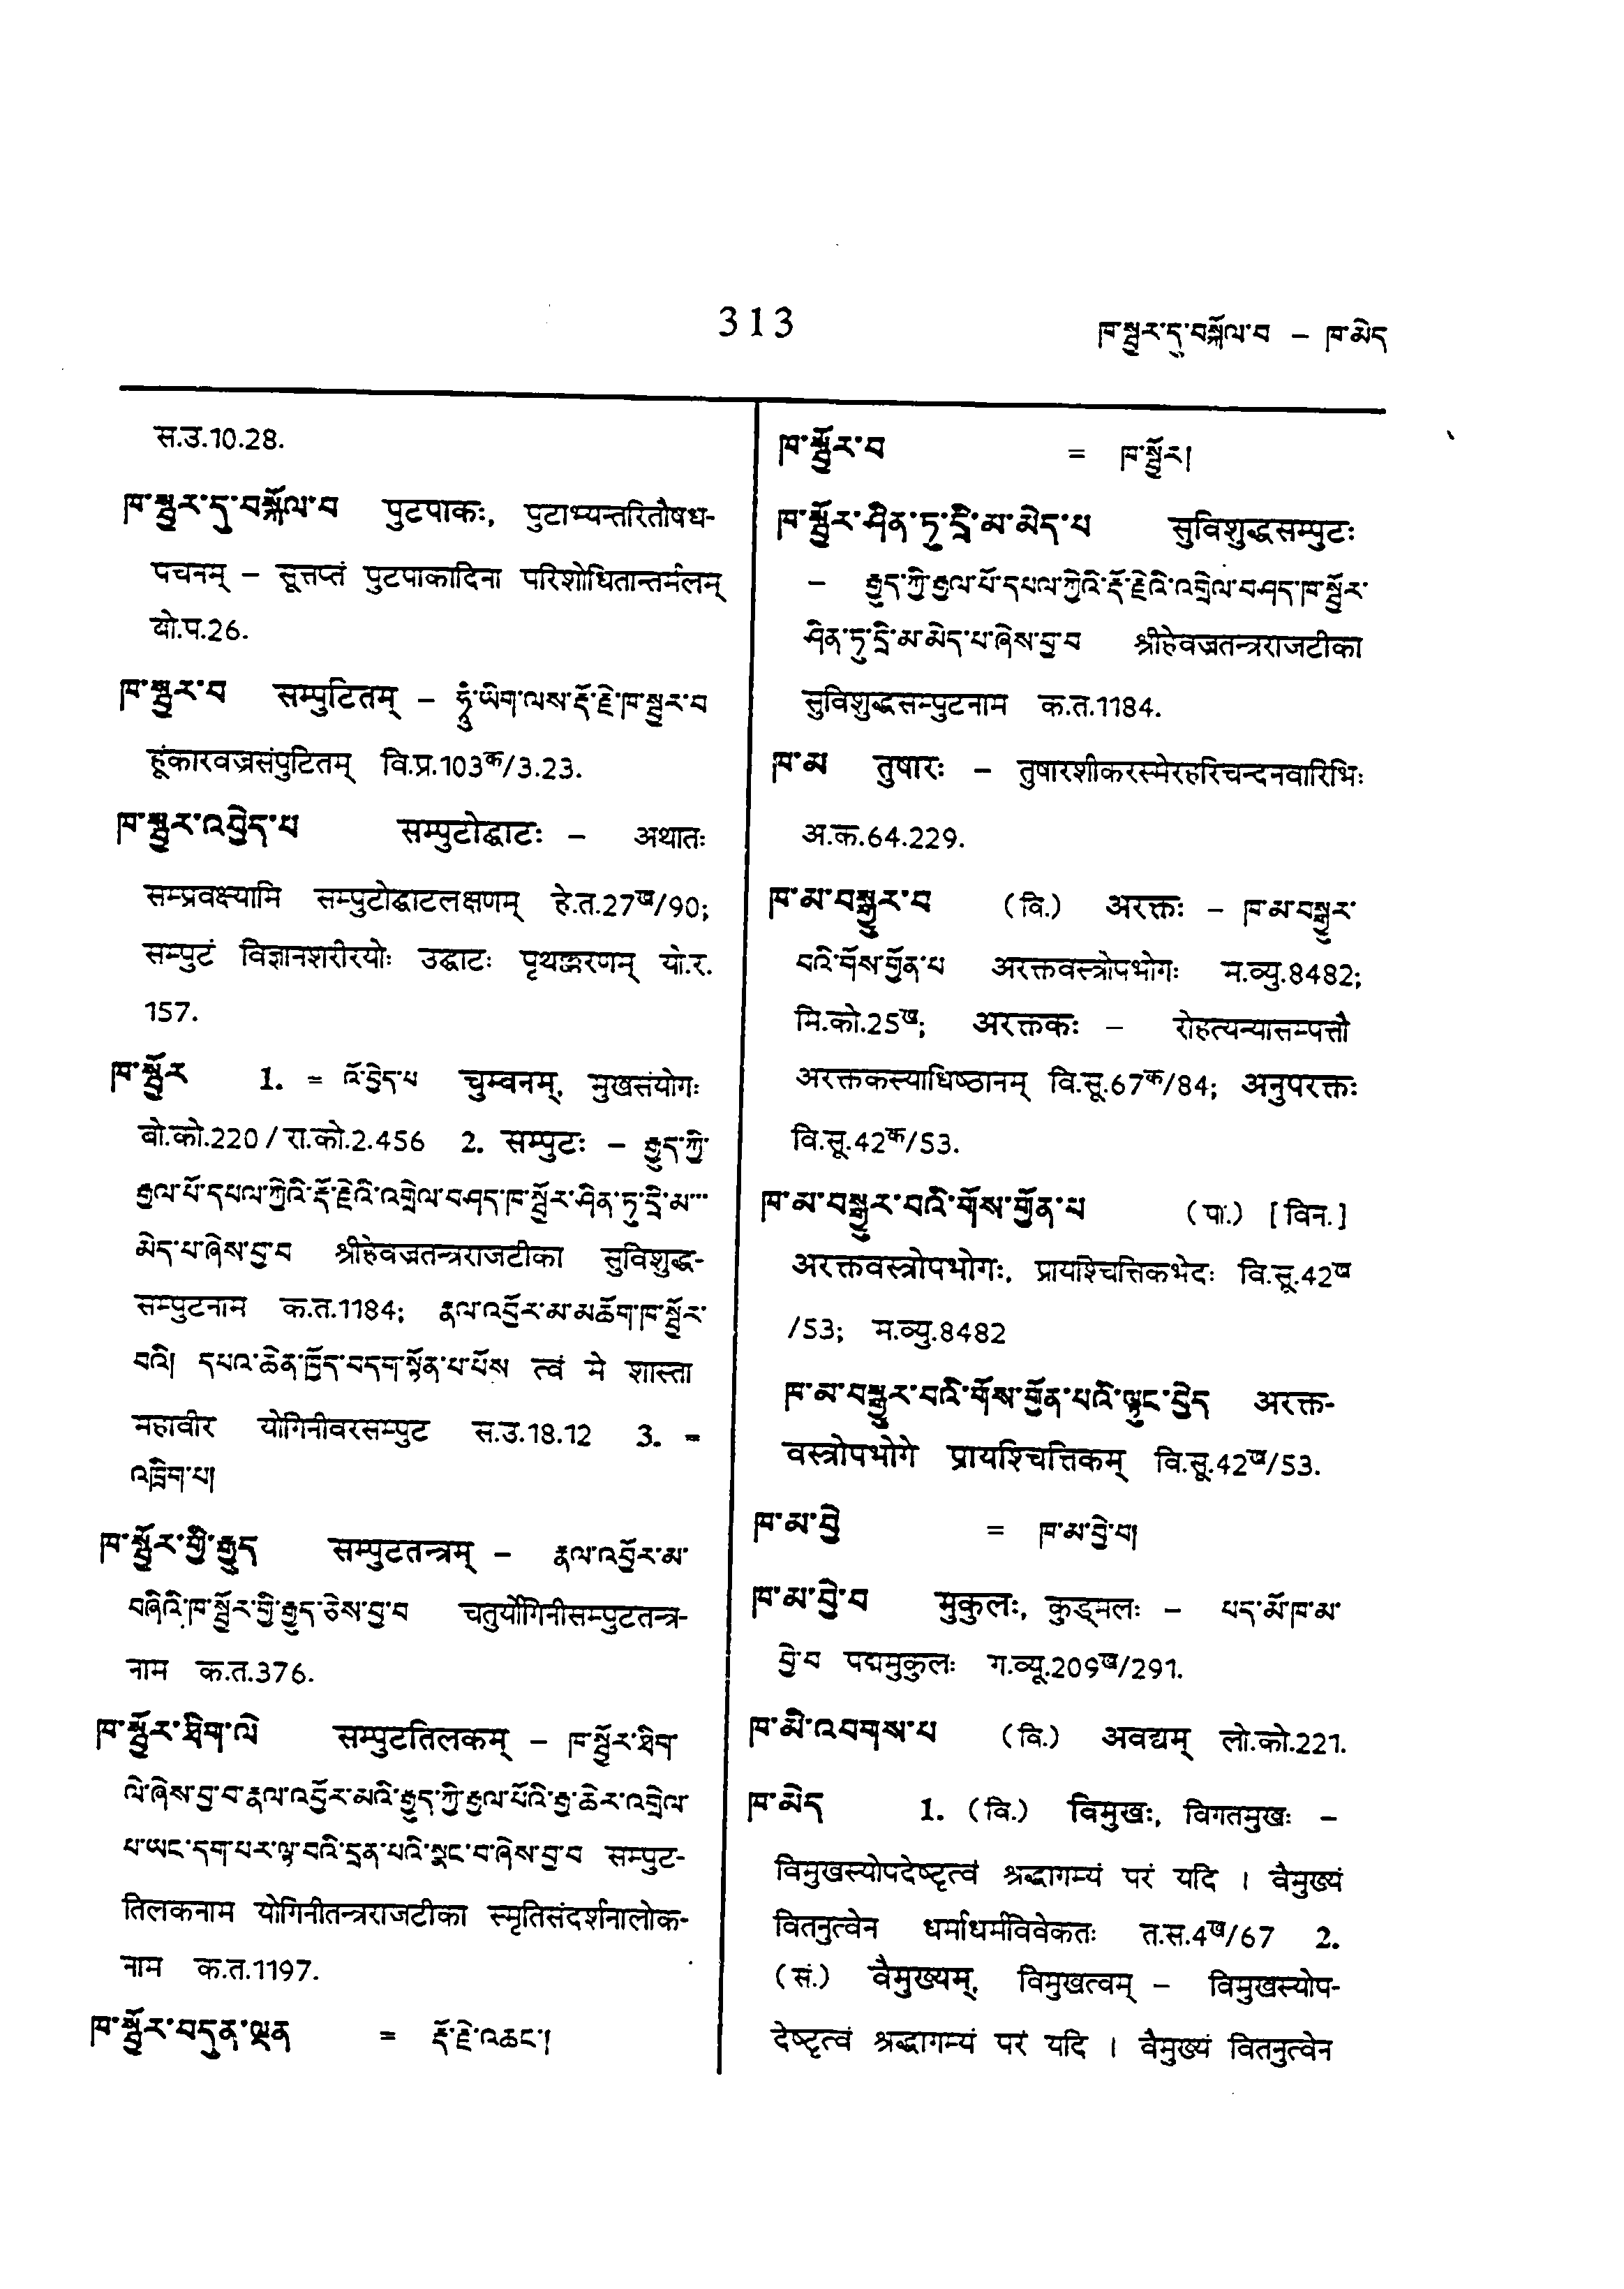 313
ཁ་སྦྱར་དུ་བསྐོལ་བ – ཁ་མེད
स.उ.10.28.
ཁ་སྦྱར་དུ་བསྐོལ་བ पुटपाकः, पुटाभ्यन्तरितौषध-
पचनम् – सूत्तप्तं पुटपाकादिना परिशोधितान्तर्मलम्
यो.प.26.
ཁ་སྦྱར་བ सम्पुटितम् – ཧཱུྃ་ཡིག་ལས་རྡོ་རྗེ་ཁ་སྦྱར་བ
हूंकारवज्रसंपुटितम् वि.प्र.103क/3.23.
ཁ་སྦྱར་འབྱེད་པ सम्पुटोद्घाटः – अथातः
सम्प्रवक्ष्यामि सम्पुटोद्घाटलक्षणम् हे.त.27ख/90;
सम्पुटं विज्ञानशरीरयोः उद्घाटः पृथक्करणम् यो.र.
157.
ཁ་སྦྱོར 1. = འོ་བྱེད་པ चुम्वनम्, मुखसंयोगः
बो.को.220/रा.को.2.456 2. सम्पुटः – རྒྱུད་ཀྱི་
རྒྱལ་པོ་དཔལ་ཀྱེའི་རྡོ་རྗེའི་འགྲེལ་བཤད་ཁ་སྦྱོར་ཤིན་ཏུ་དྲི་མ་་་
མེད་པ་ཞེས་བྱ་བ श्रीहेवज्रतन्त्रराजटीका सुविशुद्ध-
सम्पुटनाम क.त.1184; རྣལ་འབྱོར་མ་མཆོག་ཁ་སྦྱོར་
བའི། དཔའ་ཆེན་ཁྱོད་བདག་སྟོན་པ་པོས त्वं मे शास्ता
महावीर योगिनीवरसम्पुट स.उ.18.12 3. =
འཁྲིག་པ།
ཁ་སྦྱོར་གྱི་རྒྱུད सम्पुटतन्त्रम् – རྣལ་འབྱོར་མ་
བཞིའི་ཁ་སྦྱོར་གྱི་རྒྱུད་ཅེས་བྱ་བ चतुर्योगिनीसम्पुटतन्त्र-
नाम क.त.376.
ཁ་སྦྱོར་ཐིག་ལེ सम्पुटतिलकम् – ཁ་སྦྱོར་ཐིག་
ལེ་ཞེས་བྱ་བ་རྣལ་འབྱོར་མའི་རྒྱུད་ཀྱི་རྒྱལ་པོའི་རྒྱ་ཆེར་འགྲེལ་
པ་ཡང་དག་པར་ལྟ་བའི་དྲན་པའི་སྣང་བ་ཞེས་བྱ་བ सम्पुट-
तिलकनाम योगिनीतन्त्रराजटीका स्मृतिसंदर्शनालोक-
नाम क.त.1197.
ཁ་སྦྱོར་བདུན་ལྡན = རྡོ་རྗེ་འཆང་།
ཁ་སྦྱོར་བ = ཁ་སྦྱོར།
ཁ་སྦྱོར་ཤིན་ཏུ་དྲི་མ་མེད་པ सुविशुद्धसम्पुटः
– རྒྱུད་ཀྱི་རྒྱལ་པོ་དཔལ་ཀྱེའི་རྡོ་རྗེའི་འགྲེལ་བཤད་ཁ་སྦྱོར་
ཤིན་ཏུ་དྲི་མ་མེད་པ་ཞེས་བྱ་བ श्रीहेवज्रतन्त्रराजटीका
सुविशुद्धसम्पुटनाम क.त.1184.
ཁ་མ तुषारः – तुषारशीकरस्मेरहरिचन्दनवारिभिः
अ.क.64.229.
ཁ་མ་བསྒྱུར་བ (वि.) अरक्तः – ཁ་མ་བསྒྱུར་
བའི་གོས་གྱོན་པ अरक्तवस्त्रोपभोगः म.व्यु.8482;
मि.को.25ख; अरक्तकः – रोहत्यन्यासम्पत्तौ
अरक्तकस्याधिष्ठानम् वि.सू.67क/84; अनुपरक्तः
वि.सू.42क/53.
ཁ་མ་བསྒྱུར་བའི་གོས་གྱོན་པ (पा.) [विन.]
अरक्तवस्त्रोपभोगः, प्रायश्चित्तिकभेदः वि.सू.42ख
/53; म.व्यु.8482
ཁ་མ་བསྒྱུར་བའི་གོས་གྱོན་པའི་ལྟུང་བྱེད अरक्त-
वस्त्रोपभोगे प्रायश्चित्तिकम् वि.सू.42ख/53.
ཁ་མ་བྱེ = ཁ་མ་བྱེ་བ།
ཁ་མ་བྱེ་བ मुकुलः, कुड्मलः – པད་མོ་ཁ་མ་
བྱེ་བ पद्ममुकुलः ग.व्यू.209ख/291.
ཁ་མི་འབགས་པ (वि.) अवद्यम् लो.को.221.
ཁ་མེད 1. (वि.) विमुखः, विगतमुखः –
विमुखस्योपदेष्टृत्वं श्रद्धागम्यं परं यदि । वैमुख्यं
वितनुत्वेन धर्माधर्मविवेकतः त.स.4ख/67 2.
(सं.) वैमुख्यम्, विमुखत्वम् – विमुखस्योप-
देष्टृत्वं श्रद्धागम्यं परं यदि । वैमुख्यं वितनुत्वेन